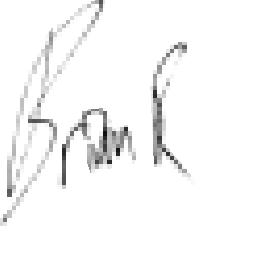 Brian K